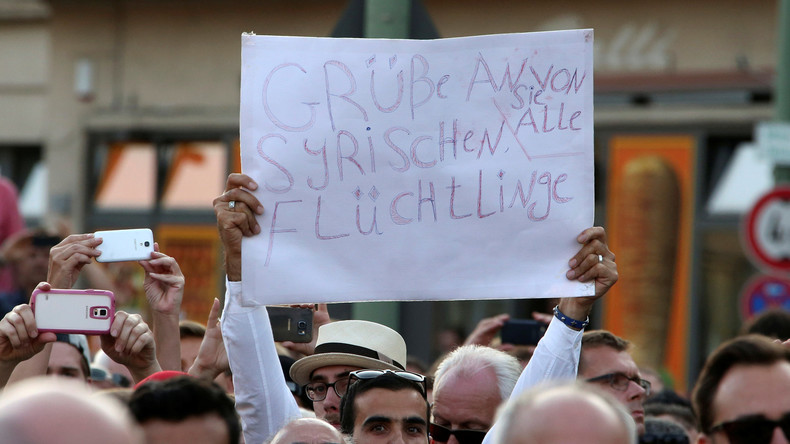 GRÜßE AN VON
Sie
SYRISCHEN ALLE
FLÜCHTLINGE